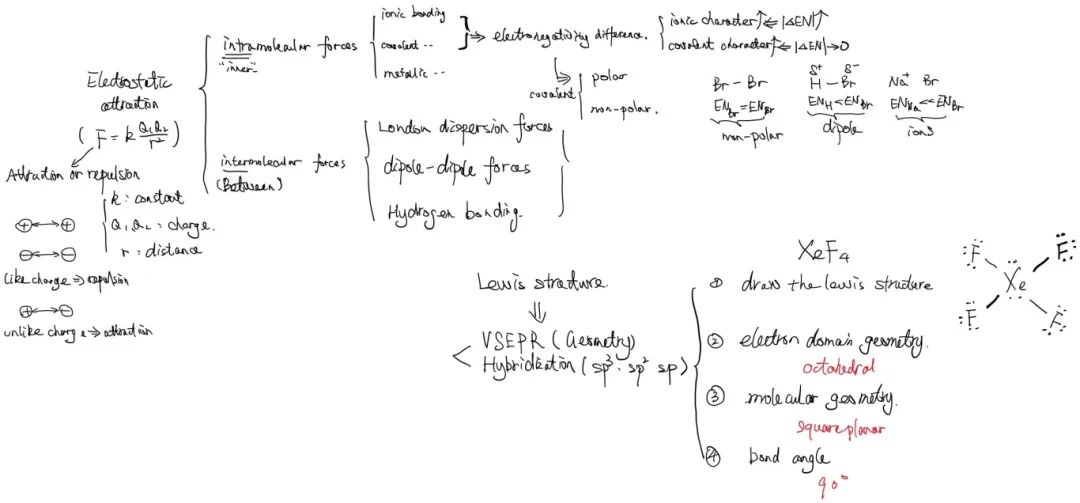 Electrostatic
attraction
( F = k Q₁Q₂/r² )
Attraction or repulsion
k : constant
Q₁Q₂ : charge.
r : distance
⊕↔⊕
⊖↔⊖
like charge ⇒ repulsion
⊕↔⊖
unlike charge ⇒ attraction
intramolecular forces
"inner"
ionic bonding
covalent ··
metallic ··
⇒ electronegativity difference.
ionic character↑ ⇐ |ΔEN|↑
covalent character↑ ⇐ |ΔEN|→0
covalent
polar
non-polar.
Br – Br
EN_Br = EN_Br
non-polar
δ⁺ δ⁻
H – Br
EN_H < EN_Br
dipole
Na⁺ Br
EN_Na << EN_Br
ions
intermolecular forces
(Between)
London dispersion forces
dipole-diple forces
Hydrogen bonding.
Lewis structure.
⇓
VSEPR (Geometry)
Hybridization (sp³. sp² sp)
XeF₄
① draw the lewis structure
② electron domain geometry.
octahedral
③ molecular geometry.
square planar
④ bond angle
90°
F F
Xe
F F